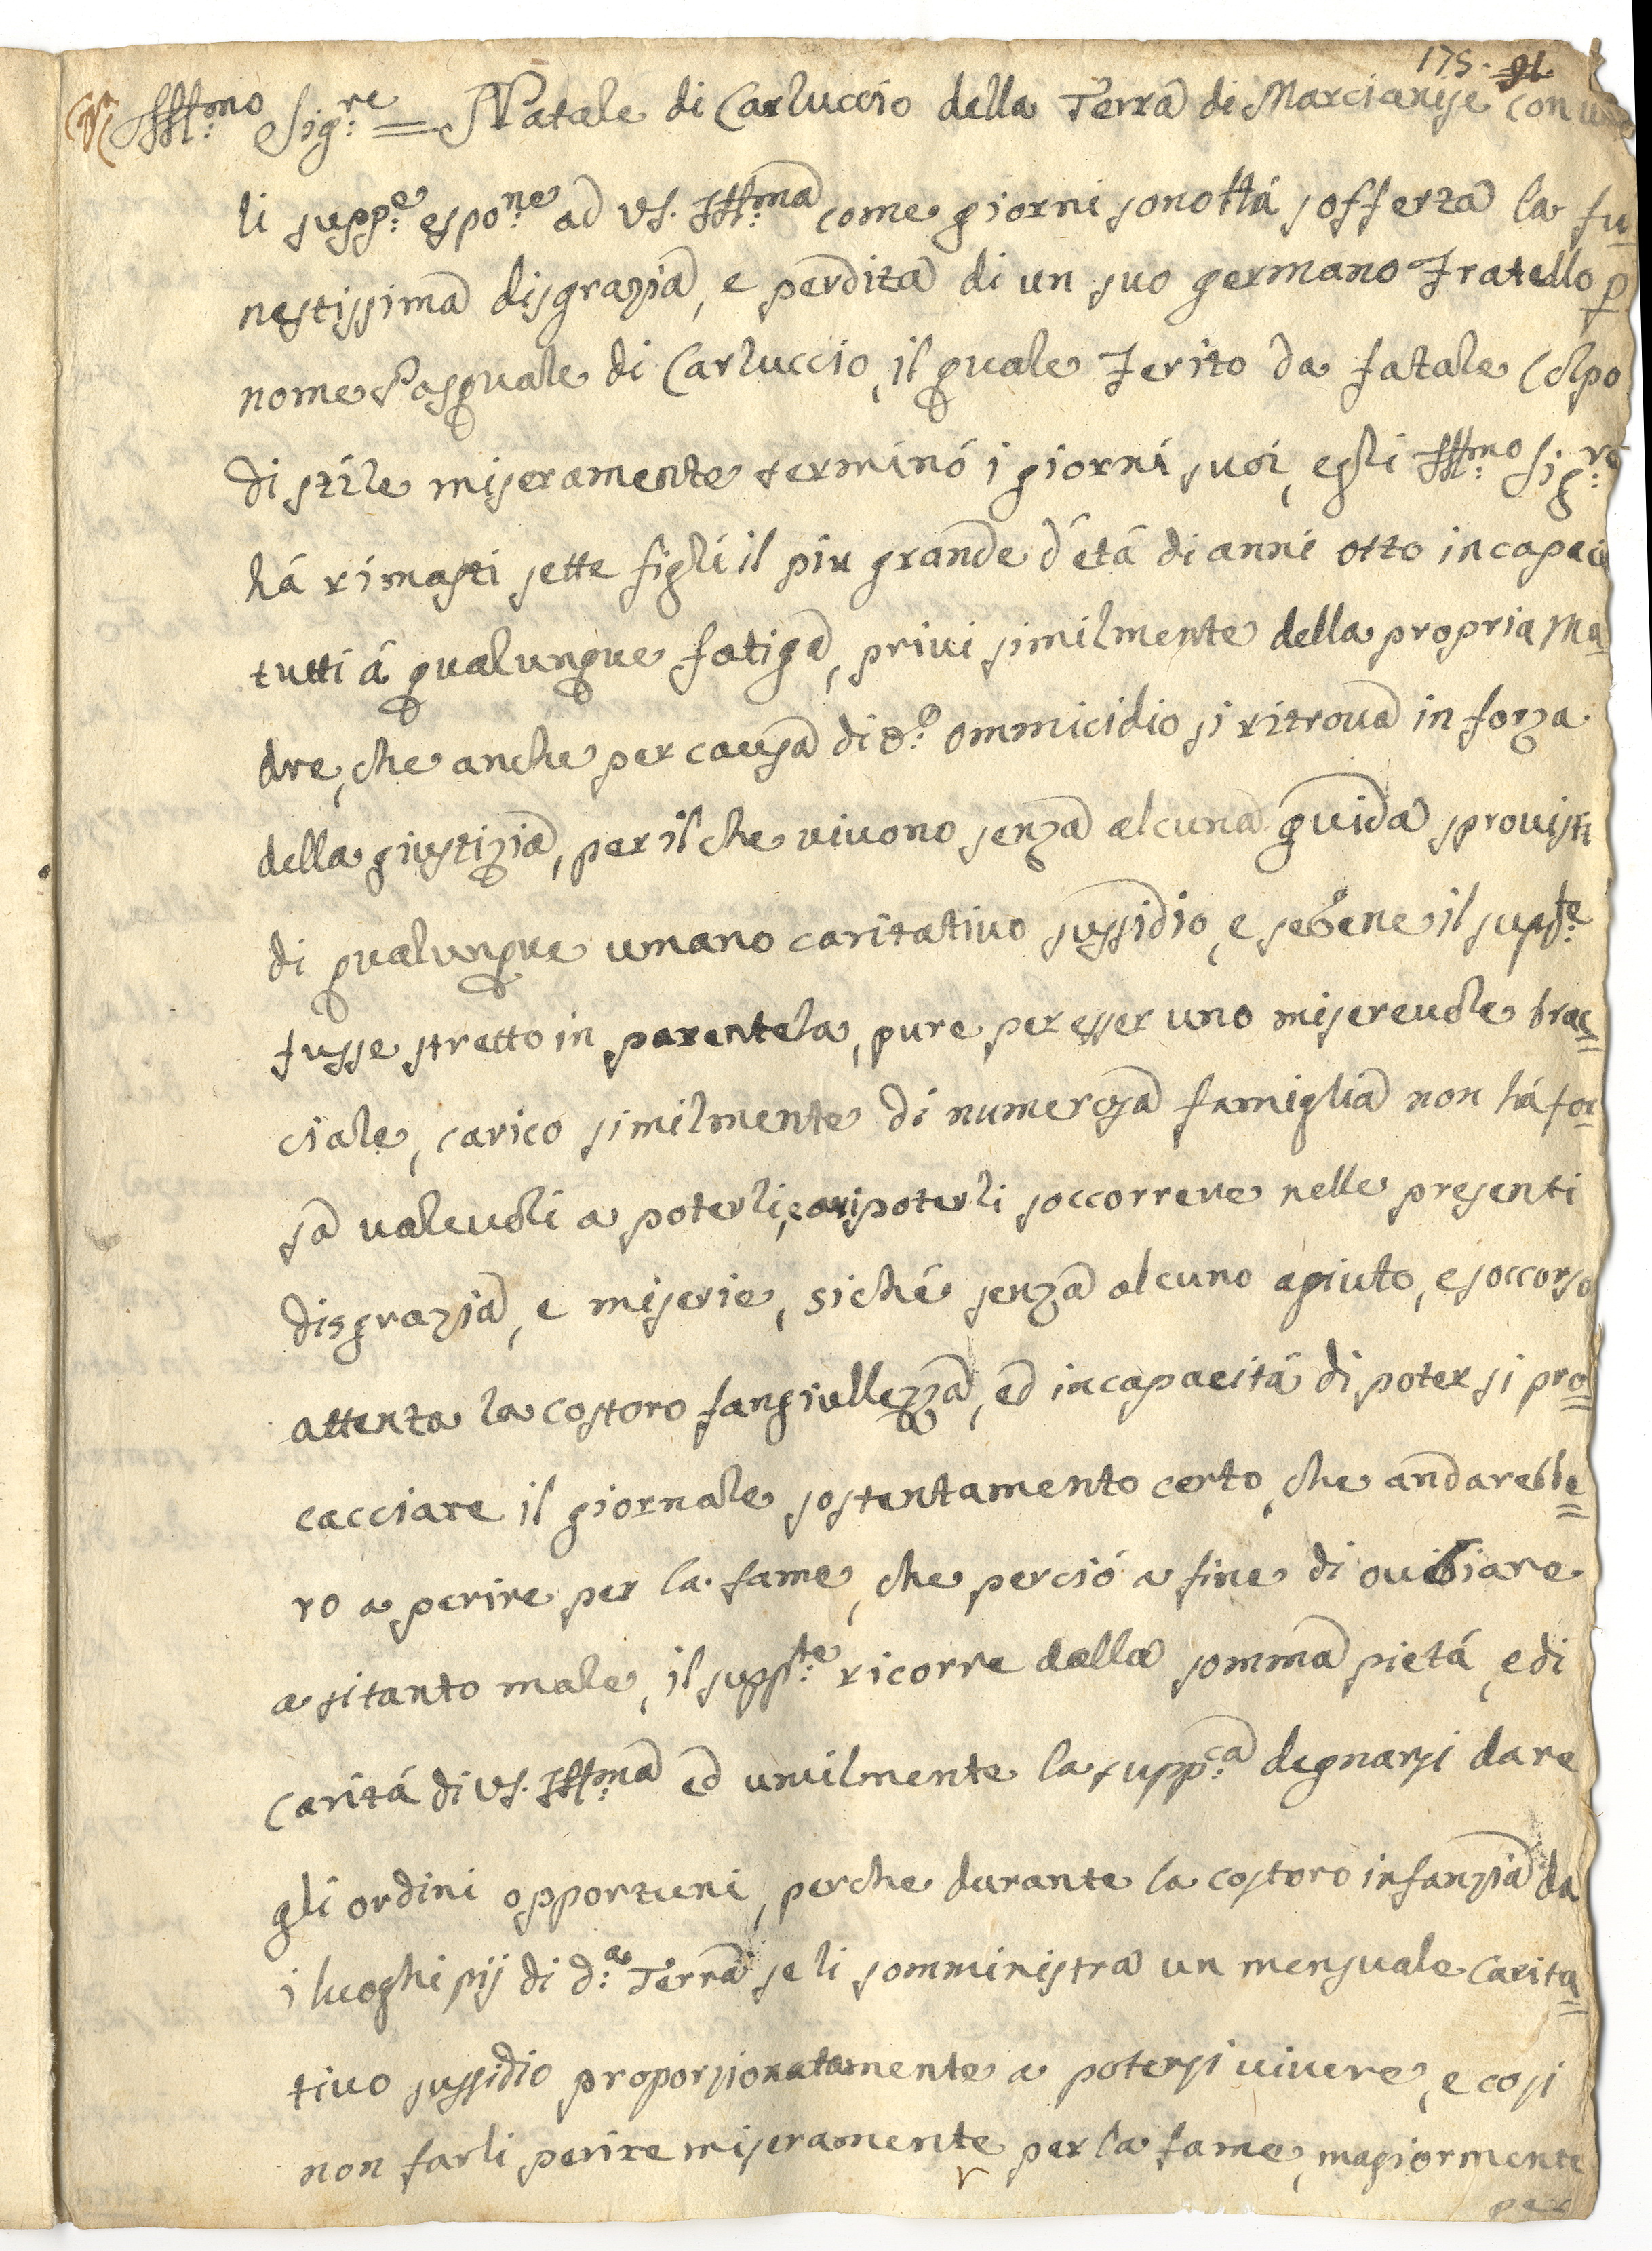 175. 91.
Ill:mo Sig:re = Natale di Carluccio della Terra di Marcianise con umi
li supp:e espo:ne ad VS. Ill:ma come giorni sono há sofferta la fu-
nestissima disgrazia, e perdita di un suo germano Fratello p
nome Pasquale di Carluccio, il quale Ferito da fatale Colpo
di stile miseramente terminó i giorni suoi, egli Ill:mo Sig:re
há rimasti sette figli il piu grande d'etá di anni otto incapaci
tutti á qualunque fatiga, privi similmente della propria Ma-
dre, che anche per causa di d:o ommicidio si ritrova in forza
della giustizia, per il che vivono senza alcuna guida sprovisti
di qualunque umano caritativo sussidio, e sebene il supp:te
fusse stretto in parentela, pure per esser uno miserevole brac=
ciale, carico similmente di numerosa famiglia non há for-
sa valevoli a poterli, soccorrere nelle presenti
disgrazia, e miserie, siché senza alcuno agiuto, e soccorso
attenta la costoro fangiullezza, ed incapacitá di poter si pro=
cacciare il giornale sostentamento certo, che andarebbe=
ro a perire per la fame, che perció a fine di oviare
a si tanto male, il supp:te ricorre dalla somma pietá, e di
Caritá di VS. Ill:ma ed umilmente la supp:ca degnarsi dare
gli ordini opportuni, perche durante la costoro infanzia da
i luoghi pij di d:a Terra se li somministra un mensuale Carita=
tivo sussidio proporzionatamente a potersi vivere, e cosi
non farli perire miseramente per la fame, magiormente
per